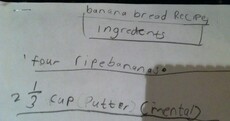 banana bread Recipe
ingredents
1 four ripebananas
2 1/3 cup (butter) (mental)